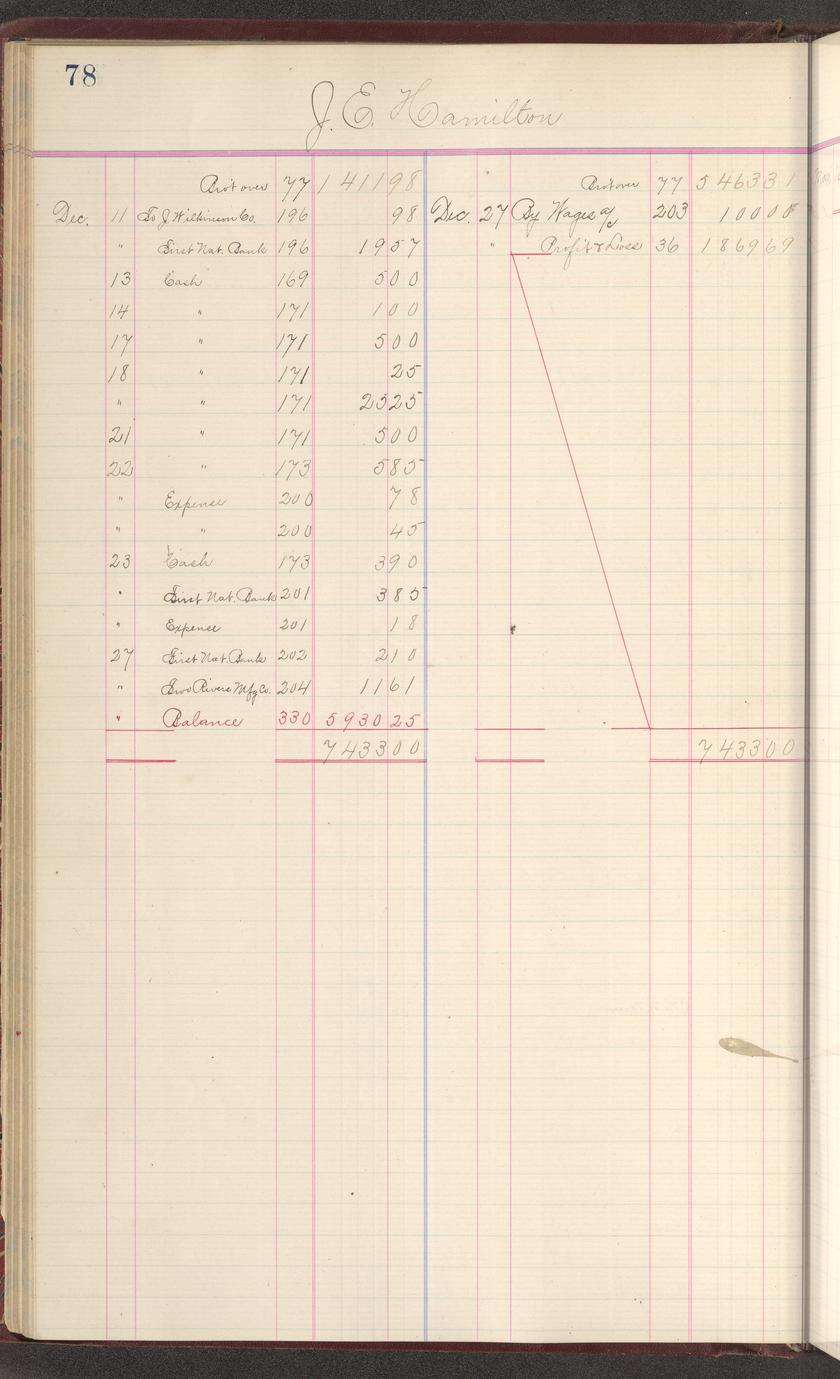 78
J. E. Hamilton
Bro't over 77 1 411 98
Dec. 11 To J Wilkinson Co. 196 98
" First Nat. Bank 196 19 57
13 Cash 169 5 00
14 " 171 1 00
17 " 171 5 00
18 " 171 25
" " 171 25 25
21 " 171 5 00
22 " 173 5 85
" Expense 200 78
" " 200 45
23 Cash 173 3 90
" First Nat. Bank 201 3 85
" Expense 201 18
27 First Nat. Bank 202 2 10
" Two Rivers Mfg Co. 204 11 61
" Balance 330 5 930 25
7 433 00
Bro't over 77 5 463 31
Dec. 27 By Wages a/c 203 100 00
" Profit & Loss 36 1 869 69
7 433 00